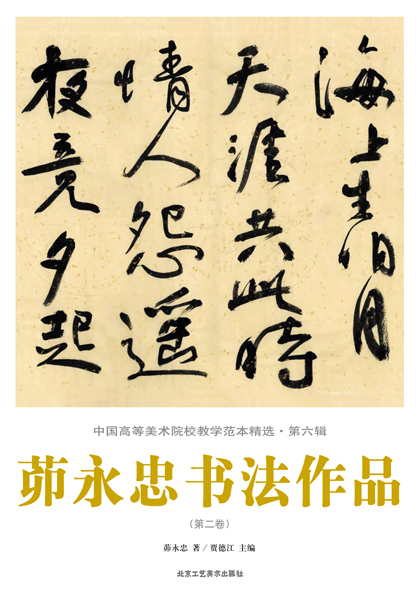 海上生明月
天涯共此時
情人怨遥
夜竟夕起
中国高等美术院校教学范本精选·第六辑
茆永忠书法作品
(第二卷)
茆永忠 著/贾德江 主编
北京工艺美术出版社